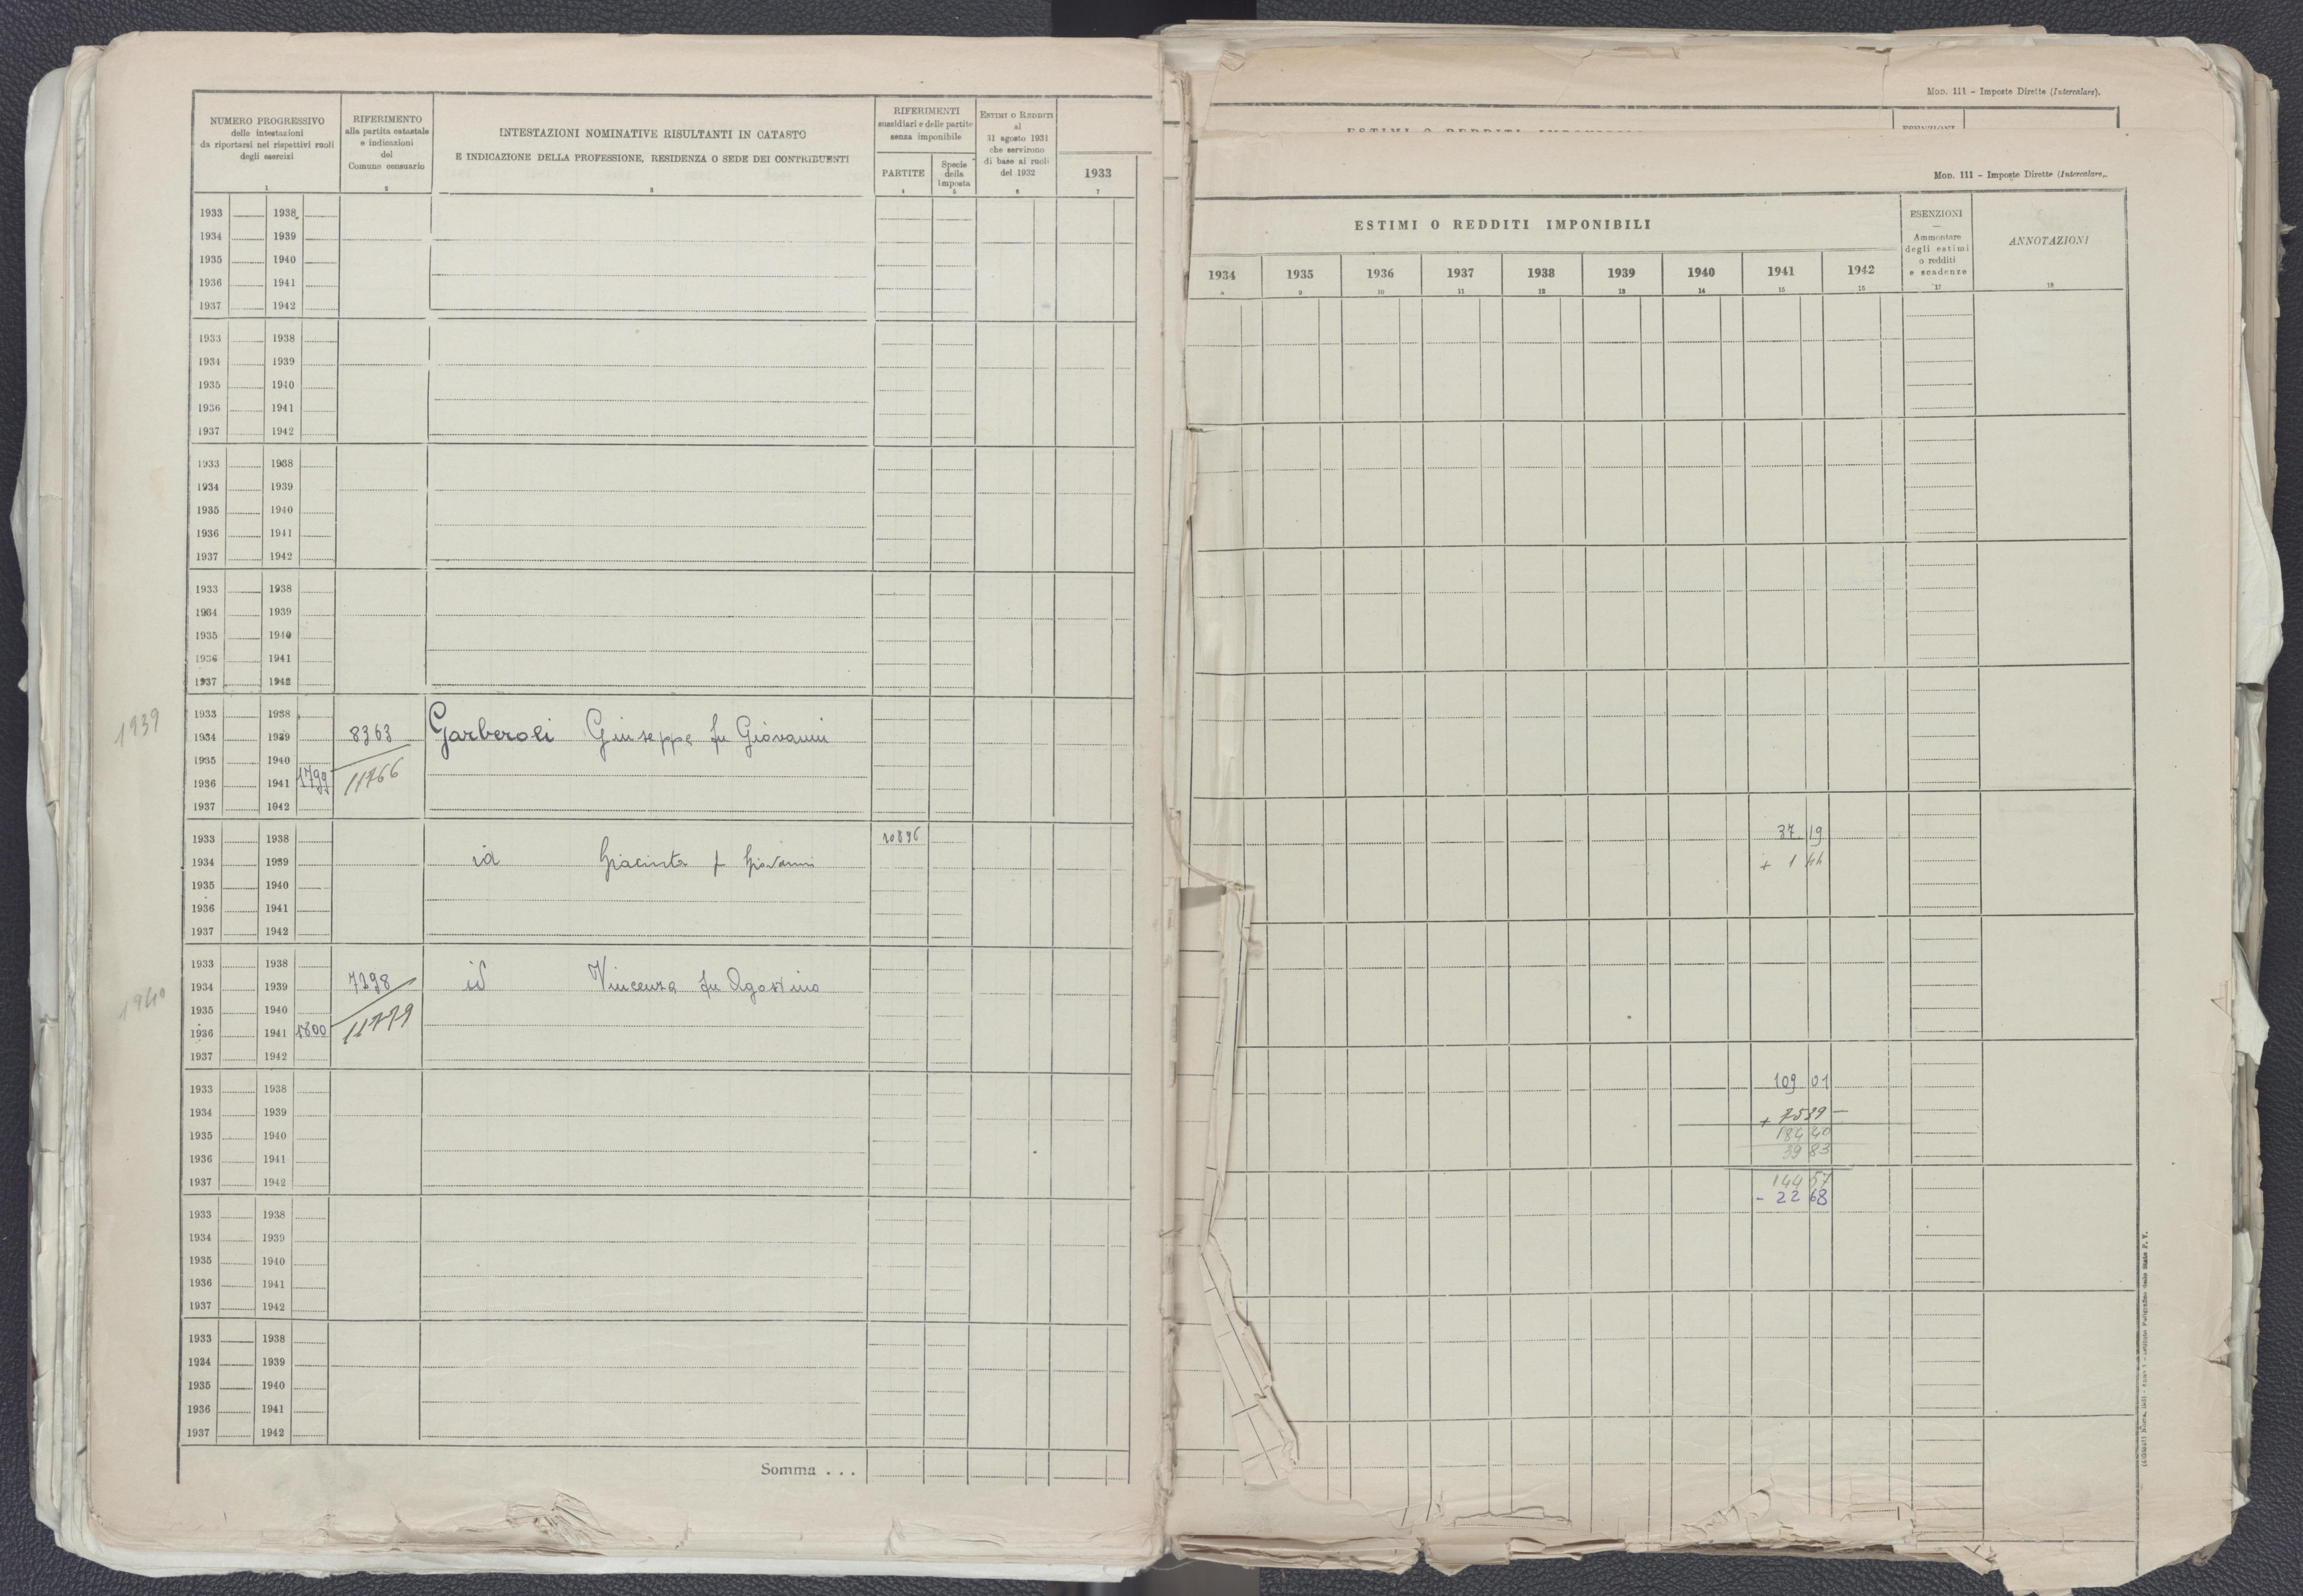 NUMERO PROGRESSIVO
delle intestazioni
da riportarsi nei rispettivi ruoli
degli esercizi
1
RIFERIMENTO
alla partita catastale
e indicazioni
del
Comune censuario
2
INTESTAZIONI NOMINATIVE RISULTANTI IN CATASTO
E INDICAZIONE DELLA PROFESSIONE, RESIDENZA O SEDE DEI CONTRIBUENTI
3
RIFERIMENTI
sussidiari e delle partite
senza imponibile
PARTITE
4
Specie
della
Imposta
5
ESTIMI O REDDITI
al
31 agosto 1931
che servirono
di base ai ruoli
del 1932
6
1933
7
1933 1938
1934 1939
1935 1940
1936 1941
1937 1942
1933 1938
1934 1939
1935 1940
1936 1941
1937 1942
1933 1938
1934 1939
1935 1940
1936 1941
1937 1942
1933 1938
1934 1939
1935 1940
1936 1941
1937 1942
1939
1933 1938
1934 1939 8363 Garberoli Giuseppe fu Giovanni
1935 1940
1936 1941 1799 11766
1937 1942
1933 1938 10896
1934 1939 id Giacinta f Giovanni
1935 1940
1936 1941
1937 1942
1940
1933 1938
1934 1939 7298 id Vincenza fu Agostino
1935 1940
1936 1941 1800 11779
1937 1942
1933 1938
1934 1939
1935 1940
1936 1941
1937 1942
1933 1938
1934 1939
1935 1940
1936 1941
1937 1942
1933 1938
1934 1939
1935 1940
1936 1941
1937 1942
Somma . . .
Mod. 111 – Imposte Dirette (Intercalare).
ESTIMI O REDDITI IMPONIBILI
ESENZIONI
Mod. 111 – Imposte Dirette (Intercalare
ESTIMI O REDDITI IMPONIBILI
1934
1935
9
1936
10
1937
11
1938
12
1939
13
1940
14
1941
15
1942
ESENZIONI
—
Ammontare
degli estimi
o redditi
e scadenze
17
ANNOTAZIONI
18
37 19
+ 1 44
109 01
+ 75 39 —
184 40
39 83
144 57
- 22 68